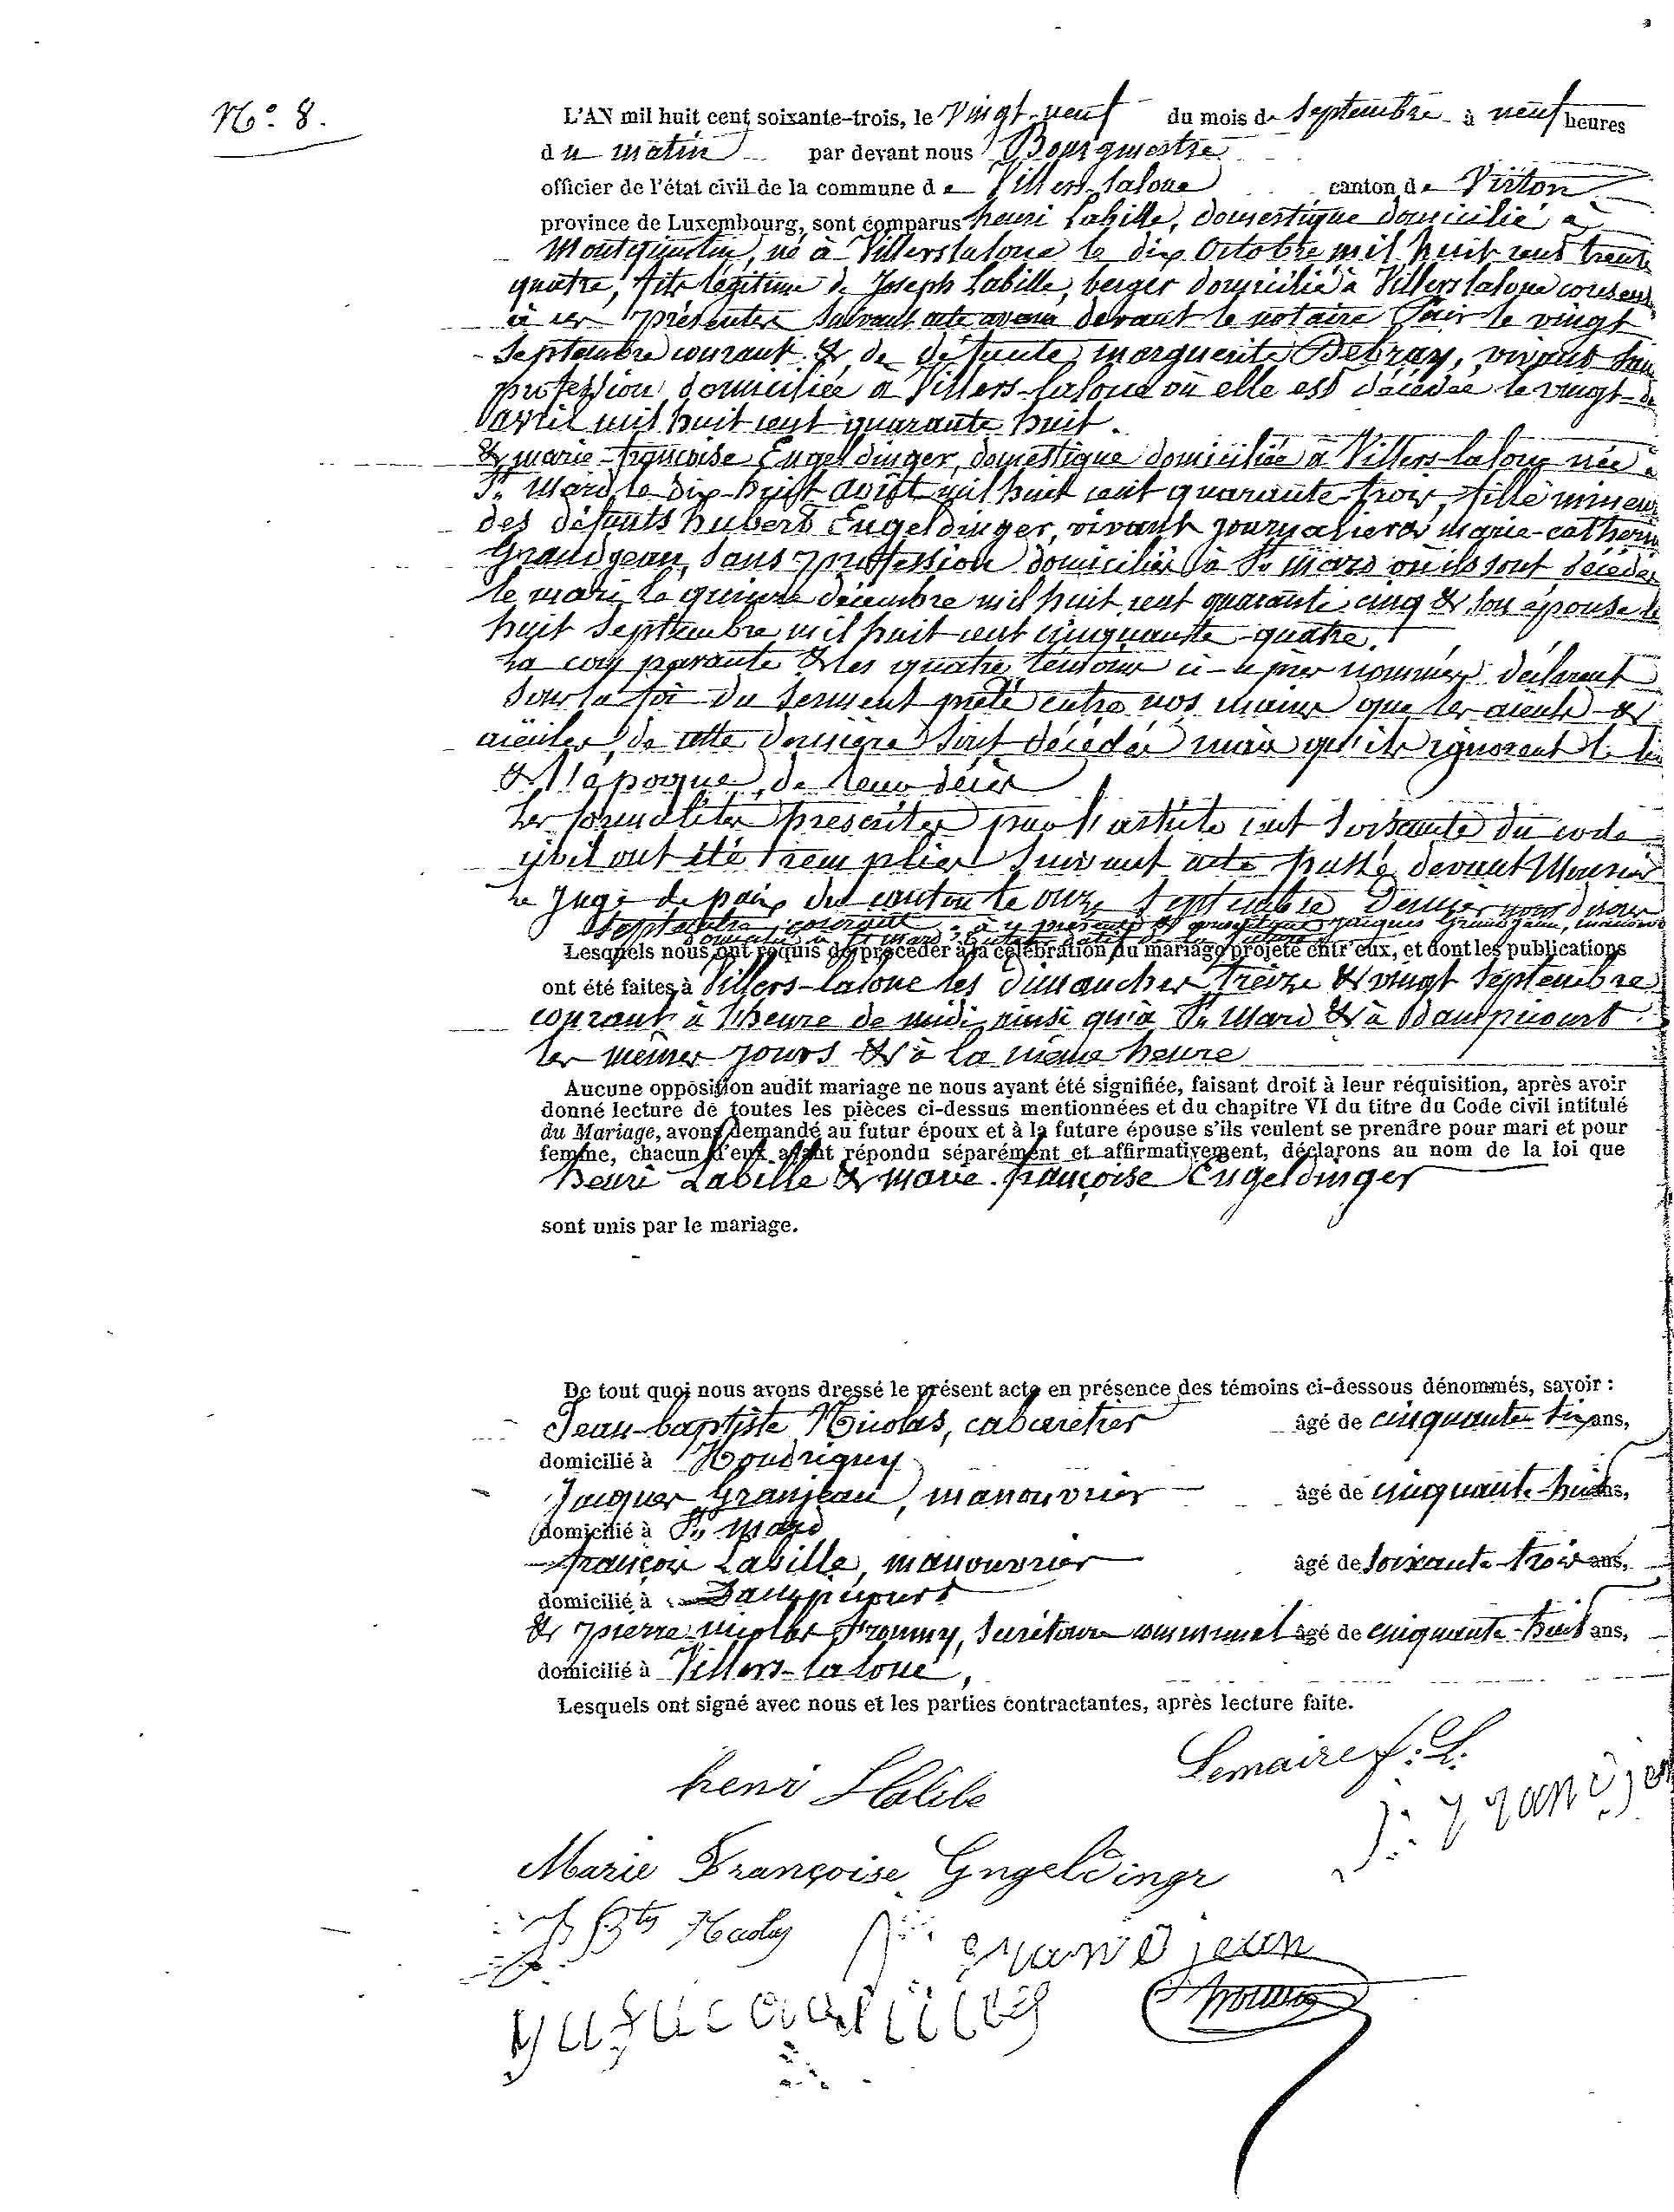 N° 8.
L'AN mil huit cent soixante-trois, le vingt-neuf du mois de septembre à neuf heures
du matin par devant nous Bourgmestre
officier de l'état civil de la commune de Villers-laloue canton de Virton
province de Luxembourg, sont comparus henri Labille, domestique domicilié à
Montquintin, né à Villerslaloue le dix Octobre mil huit cent trente
quatre, fils légitime de Joseph Labille, berger domicilié à Villerslaloue
à ces présentes suivant acte devant le notaire le vingt
septembre courant & de défunte marguerite Debray, vivant sans
profession domiciliée à Villers-laloue où elle est décédée le vingt-
avril mil huit cent quarante huit.
& marie-françoise Engeldinger, domestique domiciliée à Villers-laloue née à
St Mard le dix-huit août mil huit cent quarante-trois, fille mineure
des défunts hubert Engeldinger, vivant journalier & marie-catherine
Grandjean, sans profession domiciliés à St Mard où ils sont décédés
le mari le quinze décembre mil huit cent quarante cinq & son épouse le
huit septembre mil huit cent cinquante-quatre.
La comparante & les quatre témoins ci-après nommés déclarent
sous la foi du serment prêté entre nos mains que les aïeuls &
aïeules de cette dernière sont décédés mais qu'ils ignorent le lieu
& l'époque de leur décès
Les formalités prescrites par l'article cent soixante du code
civil ont été remplies suivant acte passé devant Monsieur
le Juge de paix du canton le onze septembre dernier
septembre courant à présent Jacques Grandjean, manouvrier
Lesquels nous ont requis de procéder à la célébration du mariage projeté entr'eux, et dont les publications
ont été faites à Villers-laloue les dimanches treize & vingt septembre
courant à l'heure de midi ainsi qu'à St Mard & à Dampicourt
les mêmes jours & à la même heure
Aucune opposition audit mariage ne nous ayant été signifiée, faisant droit à leur réquisition, après avoir
donné lecture de toutes les pièces ci-dessus mentionnées et du chapitre VI du titre du Code civil intitulé
du Mariage, avons demandé au futur époux et à la future épouse s'ils veulent se prendre pour mari et pour
femme, chacun d'eux ayant répondu séparément et affirmativement, déclarons au nom de la loi que
henri Labille & marie-françoise Engeldinger
sont unis par le mariage.
De tout quoi nous avons dressé le présent acte en présence des témoins ci-dessous dénommés, savoir :
Jean-baptiste Nicolas, cabaretier âgé de cinquante six ans,
domicilié à Houdrigny
Jacques Granjean, manouvrier âgé de cinquante-huit ans,
domicilié à St Mard
françois Labille, manouvrier âgé de soixante-trois ans,
domicilié à Dampicourt
& pierre-nicolas secrétaire communal âgé de cinquante-huit ans,
domicilié à Villers-laloue,
Lesquels ont signé avec nous et les parties contractantes, après lecture faite.
Lemaire f. L.
henri
Marie Françoise Engeldingr
grandjean